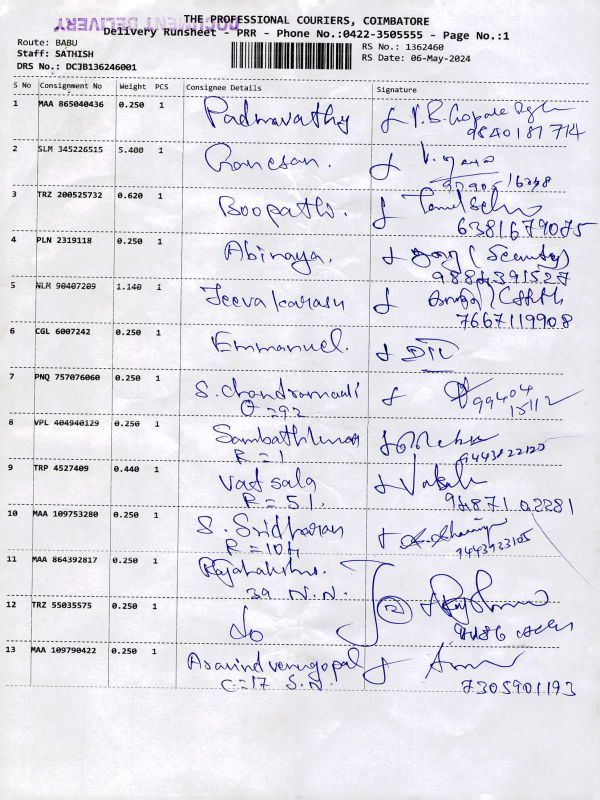 DOCUMENT DELIVERY
THE PROFESSIONAL COURIERS, COIMBATORE
Delivery Runsheet - PRR - Phone No.:0422-3505555 - Page No.:1
Route: BABU
RS No.: 1362460
Staff: SATHISH
RS Date: 06-May-2024
DRS No.: DCJB136246001
S No Consignment No Weight PCS Consignee Details Signature
1 MAA 865040436 0.250 1 Padmavathy
9840181714
2 SLM 345226515 5.400 1
3 TRZ 200525732 0.620 1 Boopathi. Tamilselvi
6381679075
4 PLN 2319118 0.250 1 Abinaya. (Security)
9884391527
5 NLM 90407209 1.140 1 Jeevakarasu
7667119908
6 CGL 6007242 0.250 1 Emmanuel.
7 PNQ 757076060 0.250 1 S. Chandramauli 99404
292 15112
8 VPL 404940129 0.250 1
R = 1 9443822120
9 TRP 4527409 0.440 1 Vatsala
R = 51. 94871 02281
10 MAA 109753280 0.250 1 S. Sridharan
R = 104 9443933105
11 MAA 864392817 0.250 1
39 N.N.
12 TRZ 55035575 0.250 1 do 2
13 MAA 109790422 0.250 1 Aravind venugopal
C=17 S.N. 7305901193